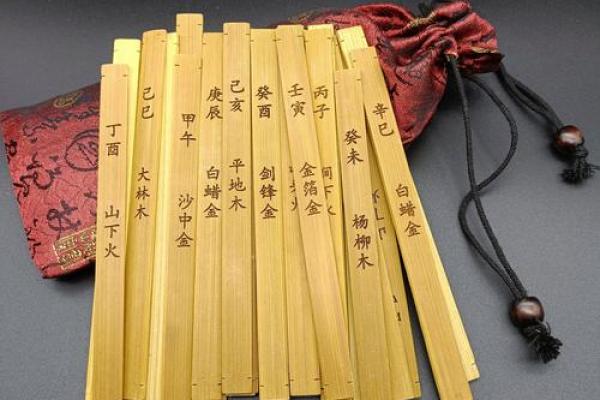 丁酉 山下火
己巳 大林木
甲午 沙中金
庚辰 白蜡金
己亥 平地木
癸酉 剑锋金
壬寅 金箔金
丙子
癸未 杨柳木
辛巳 白蜡金